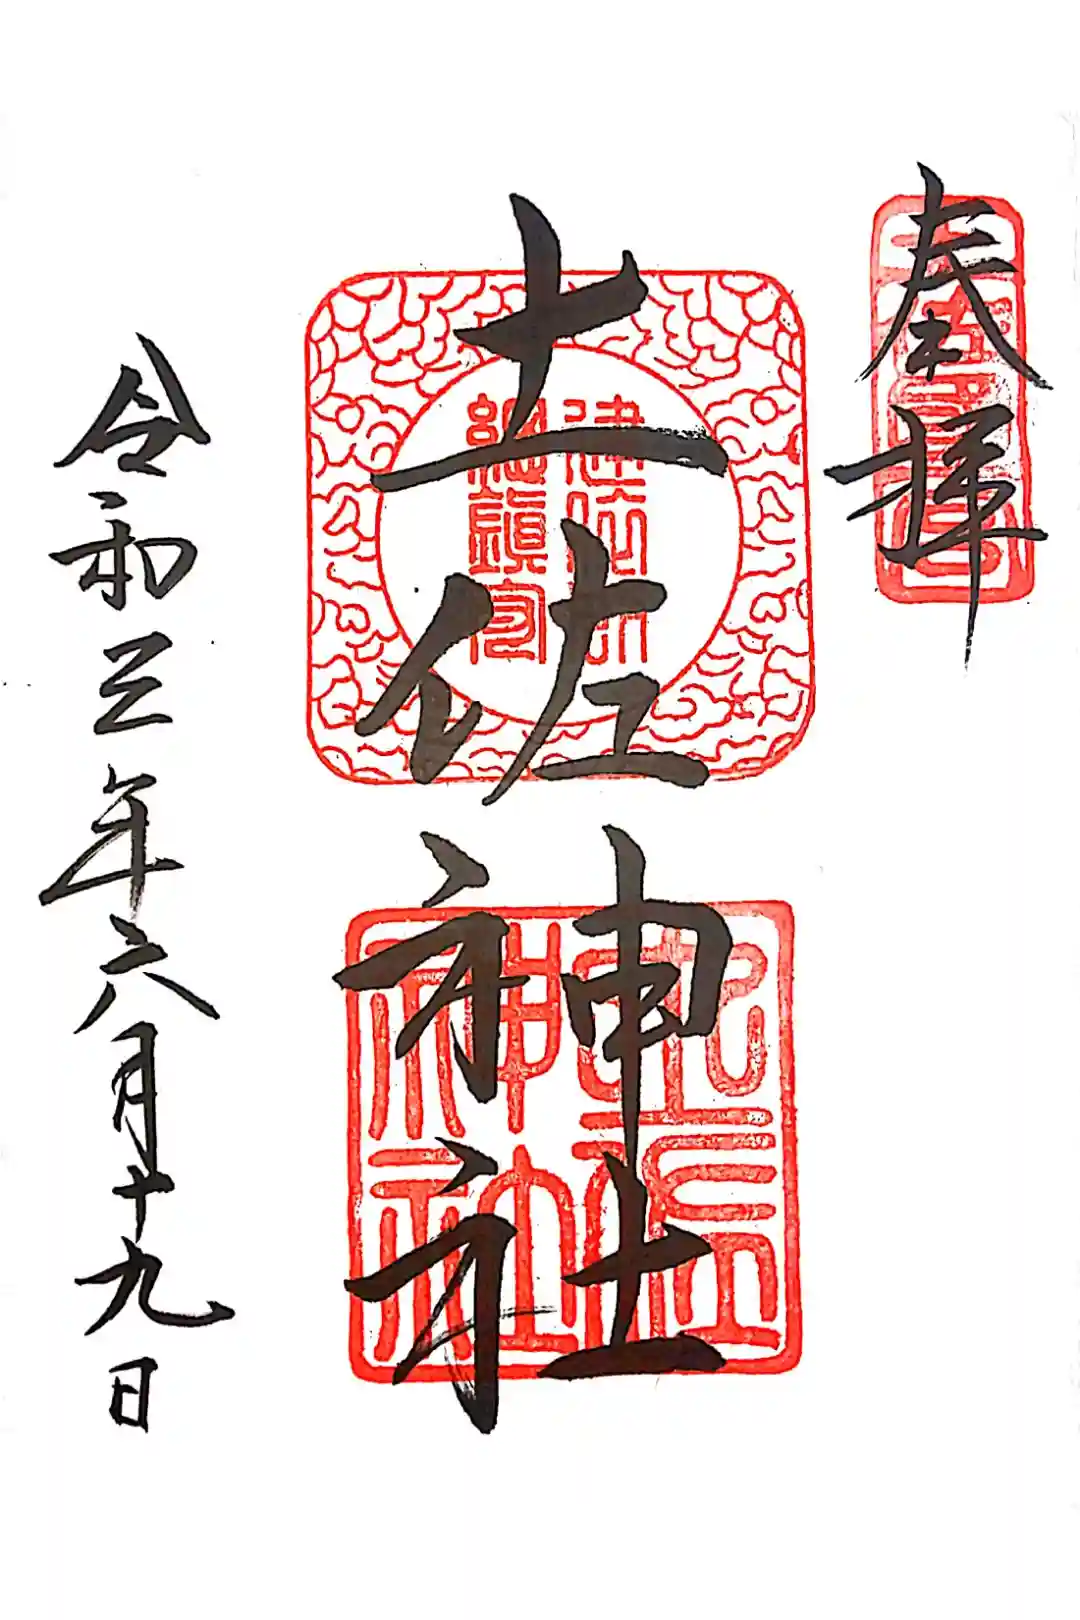 奉拝
土佐神社
令和三年六月十九日
建依別
総鎮守
土佐神社